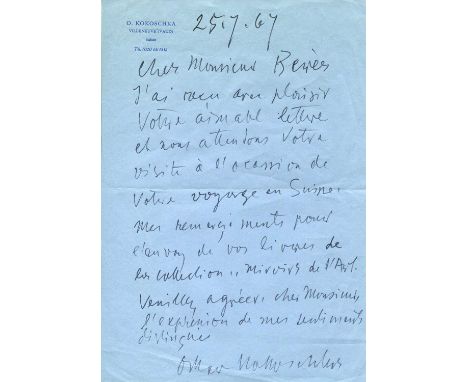 O. KOKOSCHKA
VILLENEUVE (VAUD)
25.7.67
Cher Monsieur
J'ai reçu avec plaisir
Votre aimable lettre
et nous attendons Votre
visite à l'ocassion de
Votre voyage en Suisse.
Mes remerçiments pour
l'envoy de vos livres de
la collection „Miroirs de l'Art.
Veuillez agréer, cher Monsieur
l'expression de mes sentiments
distingués
Oskar Kokoschka